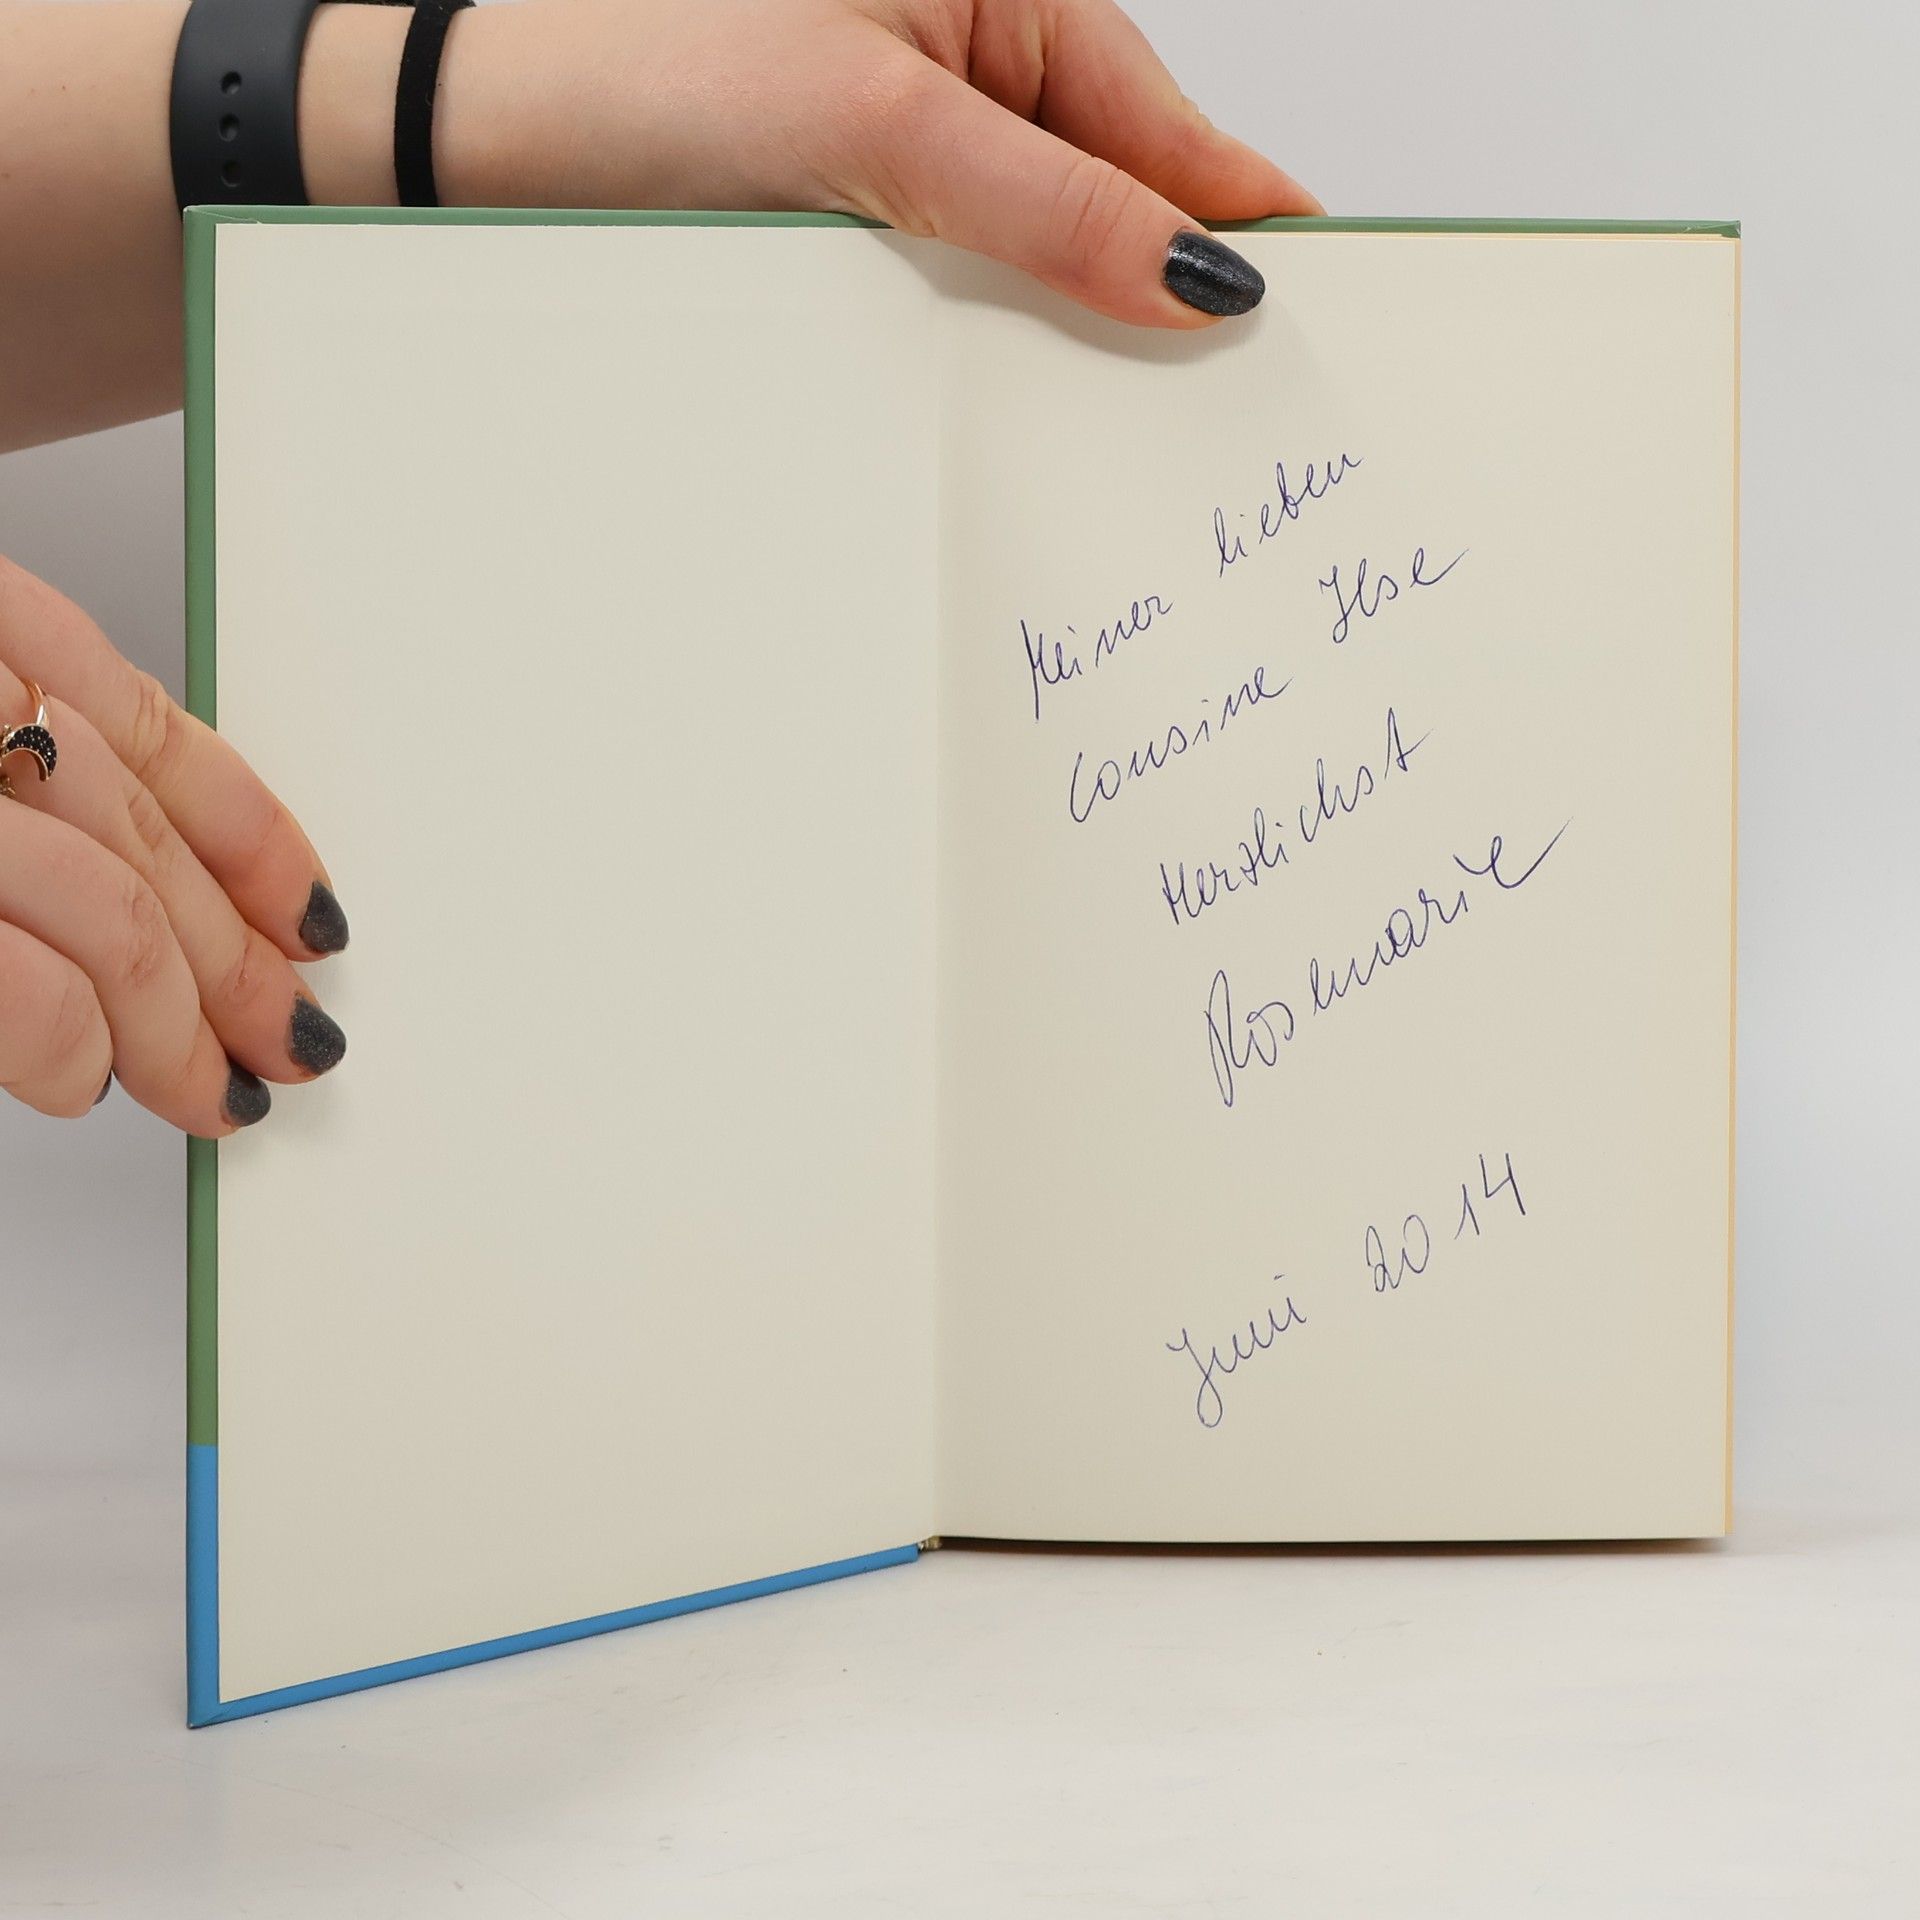 Meiner lieben
Cousine Ilse
Herzlichst
Rosemarie
Juni 2014